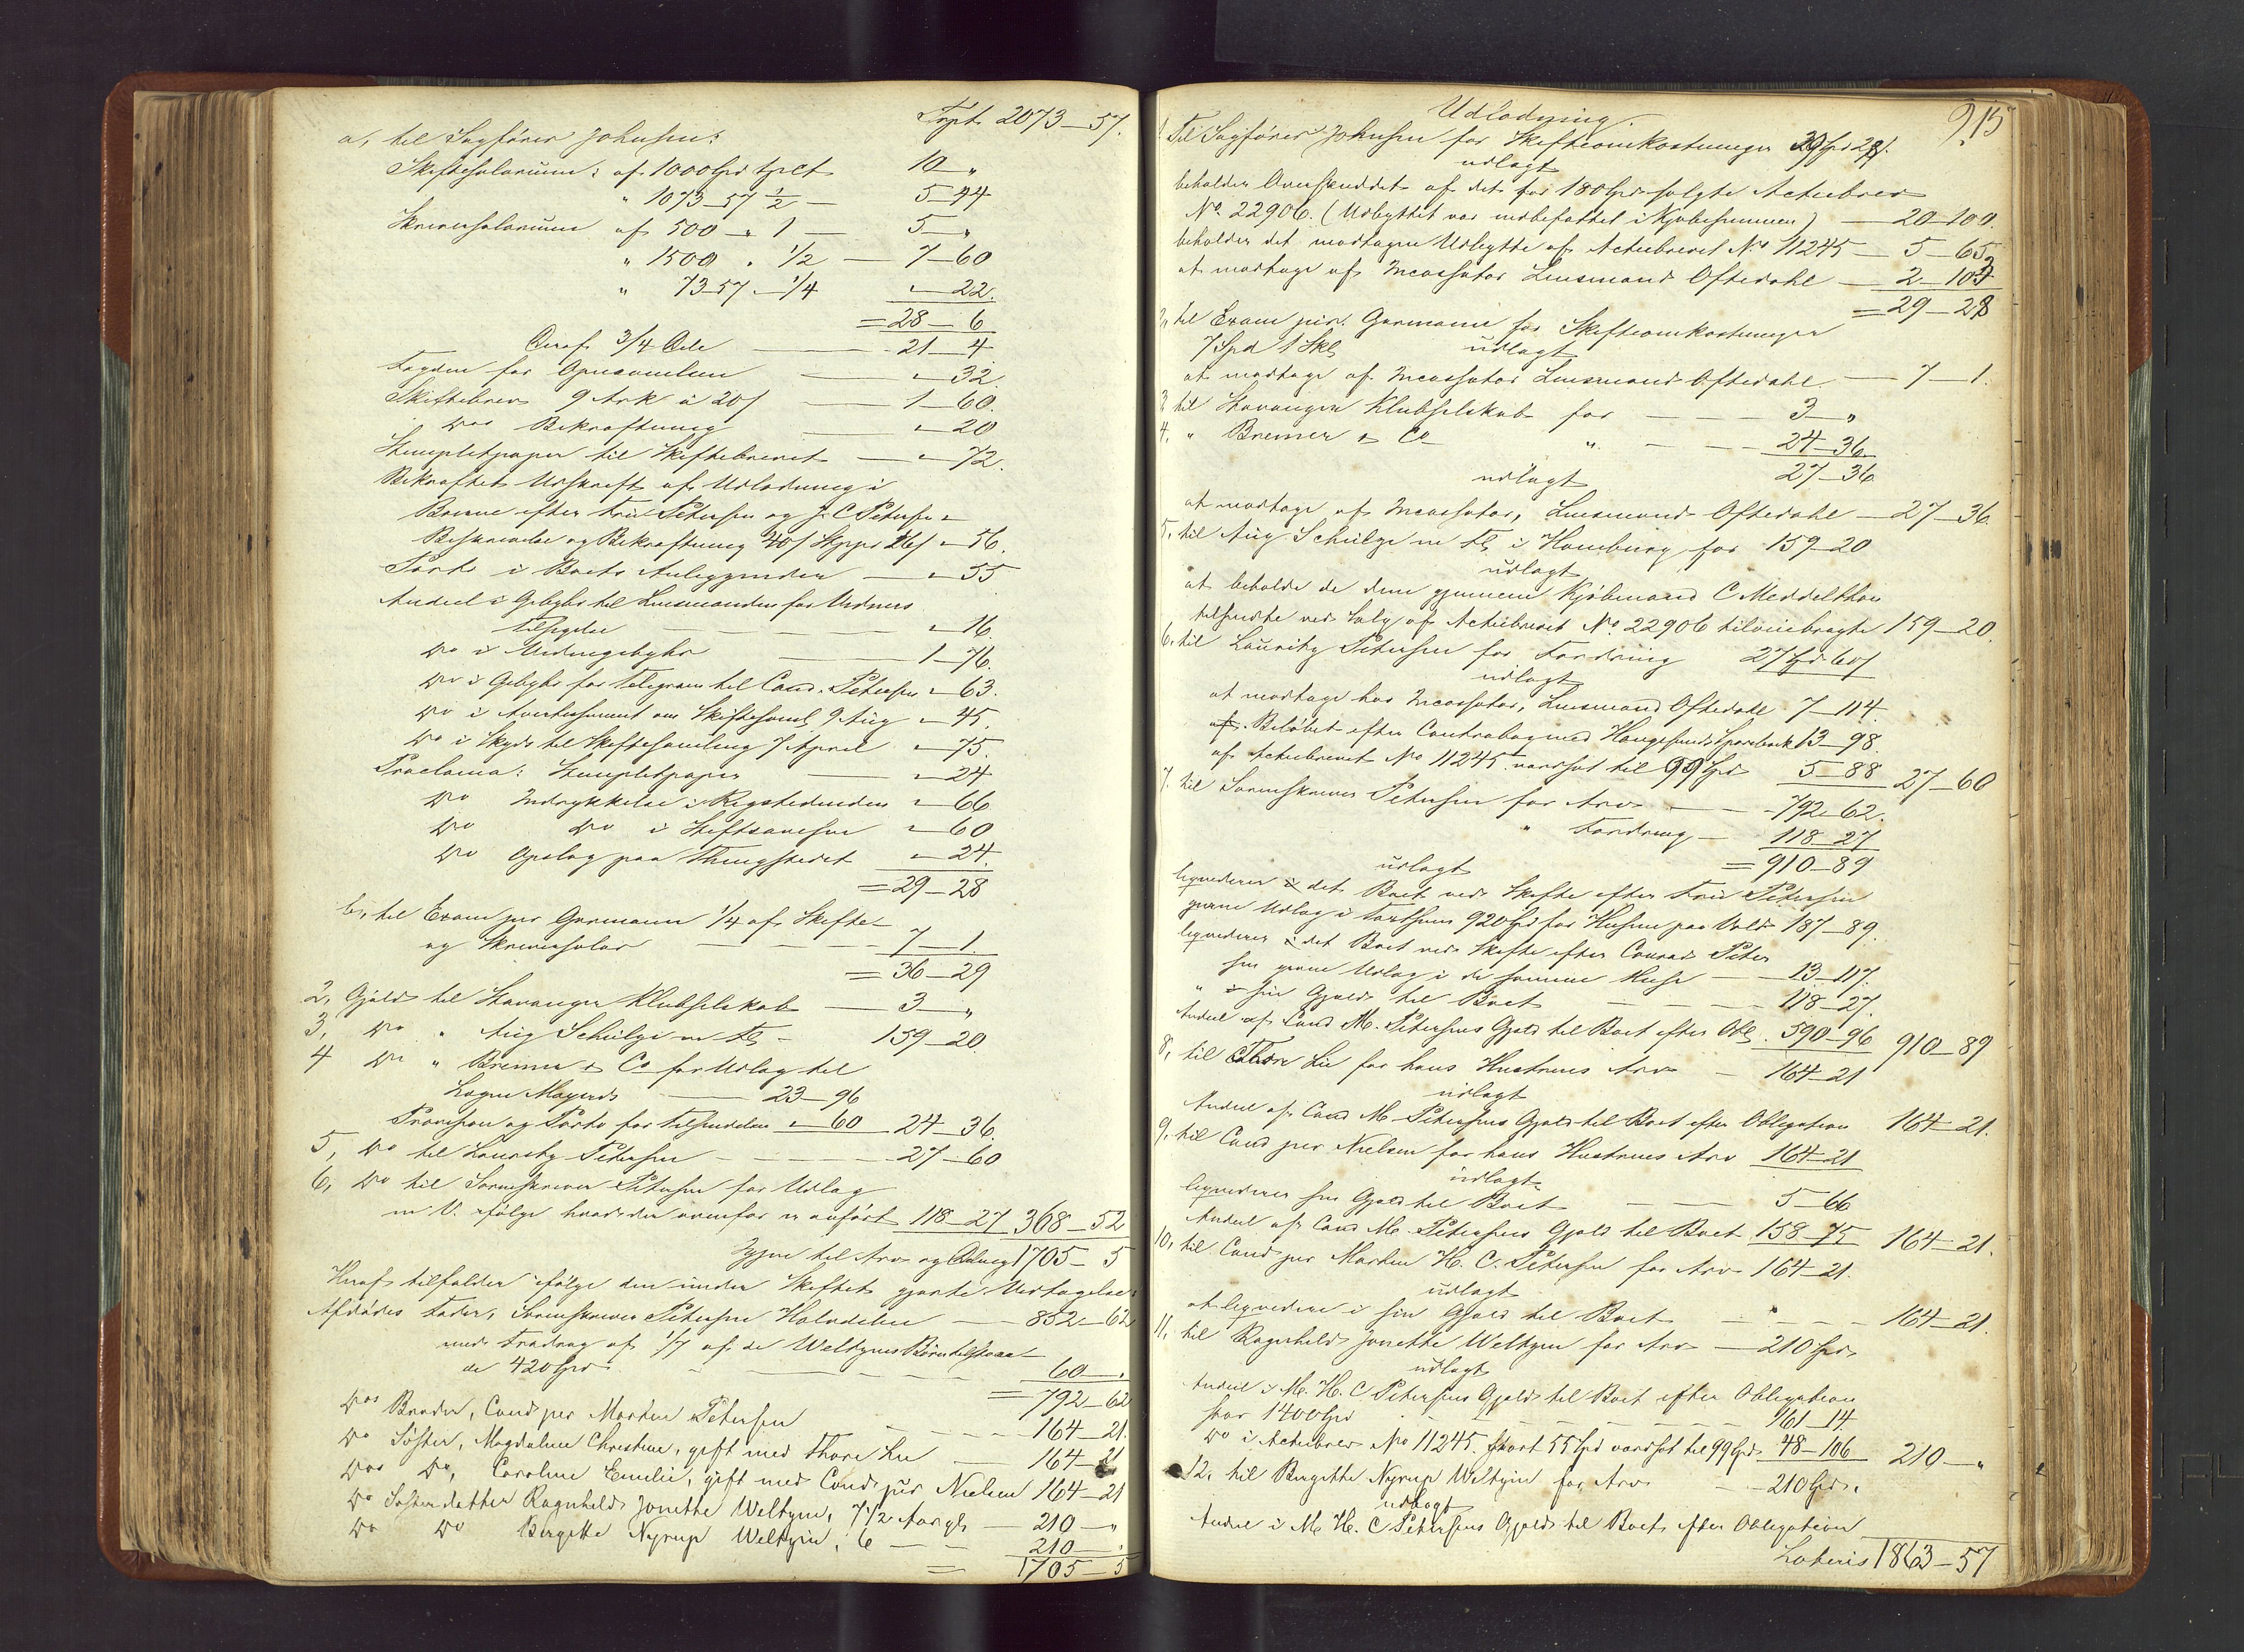 Tspt 2073–57.
a, til Sagfører Johnsen:
Skiftesalarium: af 1000 Spd 1 pct 10 "
" 1073–57 ½ — 5–44
Skriversalarium af 500 – " 1 — 5 – "
" 1500 " ½ — 7–60
" 73–57 – ¼ " – 22.
= 28–6
Deraf ¾ Dele — 21–4
Fogden for Opnævnelsen — " – 32.
Skiftebrev 9 Ark à 20 s — 1–60.
Dos Bekræftning — " – 20
Stempletpapir til Skiftebrevet — " – 72.
Bekræftet Udskrift af Udlodning i
Boerne efter Frue Petersen og J. C Petersen
Beskrivelse og Bekræftning 40 s Stppr 16 s " – 56.
Porto i Boets Anliggender — " – 55
Andeel i Gebyhr til Lensmanden for Vidners
Tilsigelse — " – 16.
Do i Vidnegebyhr — 1–76.
Do i Gebyhr for Telegram til Cand. Petersen " – 63.
Do i Avertissement om Skiftesaml. 9 Aug " – 45.
Do i Skyds til Skiftesamling 7 April " – 75.
Proclama: Stempletpapir — " – 24
Do Indrykkelse i Rigstidenden " – 66
Do Do i Stiftsavisen " – 60
Do Opslag paa Thingstedet " – 24.
= 29–28
b, til Exam jur Germann ¼ af Skifte-
og Skriversalar — 7–1.
= 36–29
2, Gjæld til Stavanger Klubselskab — 3 – "
3, Do " Aug Schülze m fl – 159–20
4 Do " Bremer & Co for Udlæg til
Logne Mayerds — 23–96
Provision og Porto for Tilsendelse " – 60 24–36.
5, Do til Lauritz Petersen — 27–60
6, Do til Sorenskriver Petersen for Udlæg
m. V. ifølge hvad der ovenfor er anført 118–27 368–52
Igjen til Arv og Udlæg 1705–5
Heraf tilfalder ifølge den under Skiftet gjorte Vedtagelse:
Afdødes Fader, Sorenskriver Petersen Halvdelen — 852–62
med Fradrag af 1/7 af de Weltzins Børn tilstaaede
de 420 Spd — 60 – "
= 792–62
Dos Broder, Cand jur Morten Petersen — 164–21.
Do Søster, Magdalene Christine, gift med Thore Lie — 164–21
Dos Do, Caroline Emilie, gift med Cand jur Nielsen 164–21
Do Søsterdatter Ragnhild Jonette Weltzin, 7½ Aar gl — 210 – "
Do Do Birgitte Nyrup Weltzin, 6 — 210 – "
= 1705–5
915
Udlodning.
1. Til Sagfører Johnsen for Skifteomkostninger 29 Spd 28 s.
udlagt
beholder Overskuddet af det for 180 Spd solgte Actiebrev
No 22906. (Udbyttet var indbefattet i Kjøbesummen) — 20–100.
beholder det modtagne Udbytte af Actiebrevet No 11245 — 5–65
at modtage af Incassator Lensmand Oftedahl — 2–103
= 29–28
2, til Exam jur. Germann for Skifteomkostninger
7 Spd 1 Skl
udlagt
at modtage af Incassator Lensmand Oftedahl — 7–1.
3, til Stavanger Klubselskab for — 3 – "
4, " Bremer & Co " — 24–36.
27–36
udlagt
at modtage af Incassator, Lensmand Oftedahl — 27–36.
5, til Aug Schülze m fl i Hamburg for 159–20
udlagt
at beholde de dem gjennem Kjøbmand C Meddelthon
tilsendte ved Salg af Actiebrevet No 22906 tilveiebragte 159–20.
6, til Lauritz Petersen for Fordring 27 Spd 60 s
udlagt
at modtage hos Incassator, Lensmand Oftedahl 7–114.
af Beløbet efter Contrabog med Haugesunds Sparebank 13–98.
af Actiebrevet No 11245 værdsat til 99 Spd 5–88 27–60
7. til Sorenskriver Petersen for Arv — 792–62.
" Fordring — 118–27
= 910–89
udlagt
liqviderer i det Boet ved Skifte efter Frue Petersen
gjorte Udlæg i Forskuds 920 Spd for Husene paa Vold 187–89.
liqviderer i det Boet ved Skifte efter Conrad Peter
sen gjorte Udlæg i de samme Huse — 13–117.
" i sin Gjæld til Boet — 118–27.
Andeel af Cand M. Petersens Gjæld til Boet efter Obl. 590–96 910–89
8, til Thore Lie for hans Hustrues Arv — 164–21
udlagt
Andeel af Cand M Petersens Gjæld til Boet efter Obligation 164–21.
9. til Cand jur Nielsen for hans Hustrues Arv 164–21
udlagt
liqviderer sin Gjæld til Boet — 5–66
Andeel af Cand M. Petersens Gjæld til Boet 158–75 164–21.
10, til Cand jur Morten H. C. Petersen for Arv 164–21.
udlagt
at liqvidere i sin Gjæld til Boet — 164–21.
11, til Ragnhild Jonette Weltzin for Arv — 210 Spd.
udlagt
Andeel i M. H. C Petersens Gjæld til Boet efter Obligation
stor 1400 Spd — 161–14.
Do i Actiebrev No 11245. stort 55 Spd værdsat til 99 Spd. 48–106 210 – "
12, til Birgitte Nyrup Weltzin for Arv — 210 Spd.
udlagt
Andeel i M. H. C Petersens Gjæld til Boet efter Obligation
Lateris 1863–57